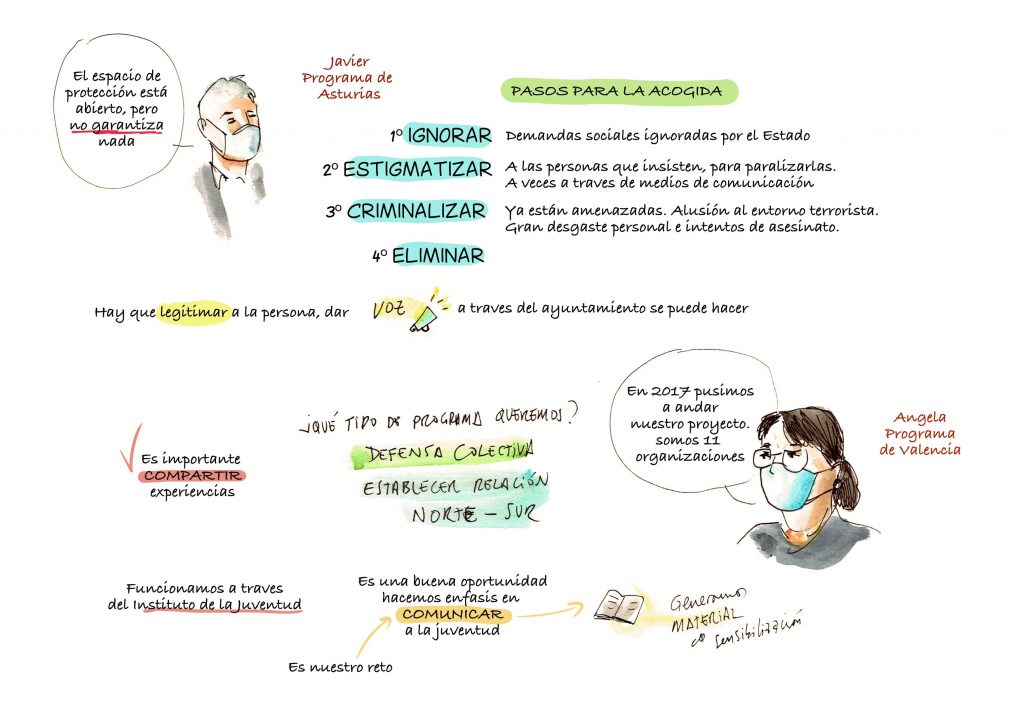 El espacio de
protección está
abierto, pero
no garantiza
nada
Javier
Programa de
Asturias
PASOS PARA LA ACOGIDA
1º IGNORAR Demandas sociales ignoradas por el Estado
2º ESTIGMATIZAR A las personas que insisten, para paralizarlas.
A veces a traves de medios de comunicación
3º CRIMINALIZAR Ya están amenazadas. Alusión al entorno terrorista.
Gran desgaste personal e intentos de asesinato.
4º ELIMINAR
Hay que legitimar a la persona, dar VOZ a traves del ayuntamiento se puede hacer
En 2017 pusimos
a andar
nuestro proyecto.
somos 11
organizaciones
Angela
Programa
de Valencia
Es importante
COMPARTIR
experiencias
¿QUÉ TIPO DE PROGRAMA QUEREMOS?
DEFENSA COLECTIVA
ESTABLECER RELACIÓN
NORTE - SUR
Funcionamos a traves
del Instituto de la Juventud
Es una buena oportunidad
hacemos enfasis en
COMUNICAR
a la juventud
Es nuestro reto
Generamos
MATERIAL
sensibilización